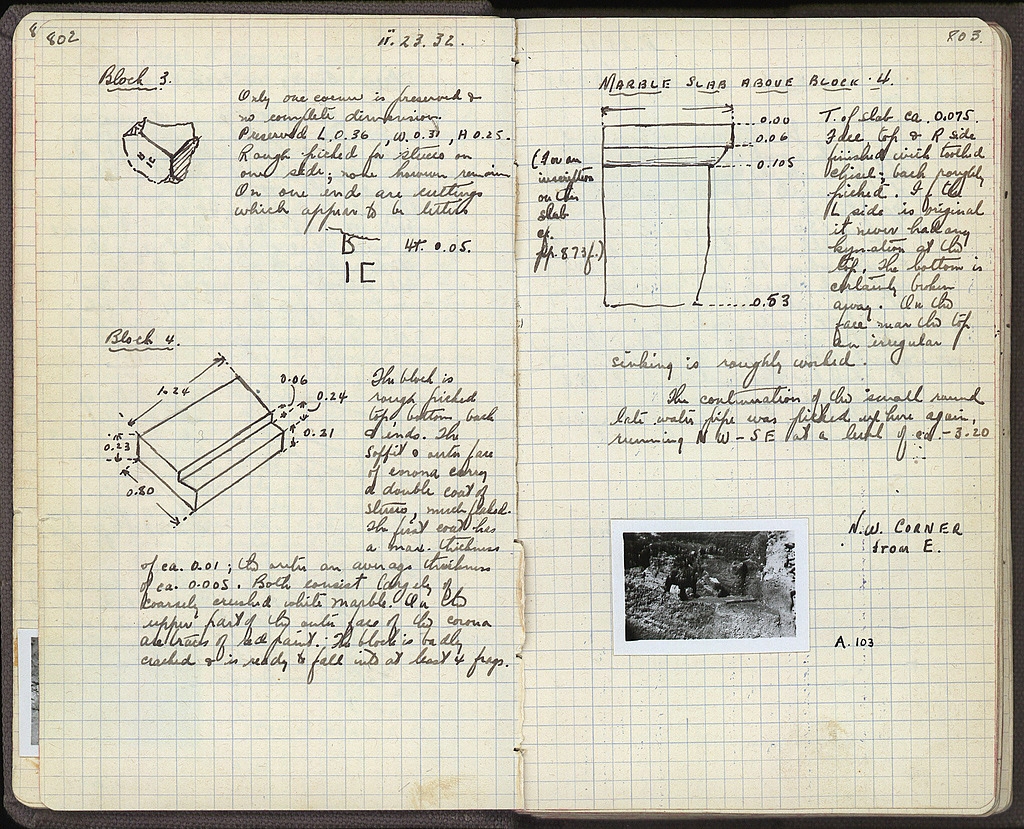 8
802
II. 23. 32.
Block 3.
Only one corner is preserved &
no complete dimension.
Preserved L 0.36, W. 0.31, H 0.25.
Rough picked for stucco on
one side; none however remains
On one end are cuttings
which appear to be letters
B
IC
B ht. 0.05.
IC
Block 4.
1.24
0.06
0.24
0.31
0.23
0.80
The block is
rough picked
top, bottom, back
& ends. The
soffit & outer face
of corona carry
a double coat of
stucco, much flaked.
The first coat has
a max. thickness
of ca. 0.01; the outer an average thickness
of ca. 0.005. Both consist largely of
coarsely crushed white marble. On the
upper part of the outer face of the corona
are traces of red paint. The block is badly
cracked & is ready to fall into at least 4 frags.
803
MARBLE SLAB ABOVE BLOCK 4.
0.00
0.06
0.105
0.53
(For an
inscription
on this
slab
cf.
pp. 873f.)
T. of slab ca. 0.075.
Face, top & R side
finished with toothed
chisel; back roughly
picked. If the
L side is original
it never had any
kymation at the
top. The bottom is
certainly broken
away. On the
face near the top
an irregular
sinking is roughly worked.
The continuation of the small round
late water pipe was picked up here again,
running NW-SE at a level of ca. -3.20
N.W. CORNER
from E.
A. 103